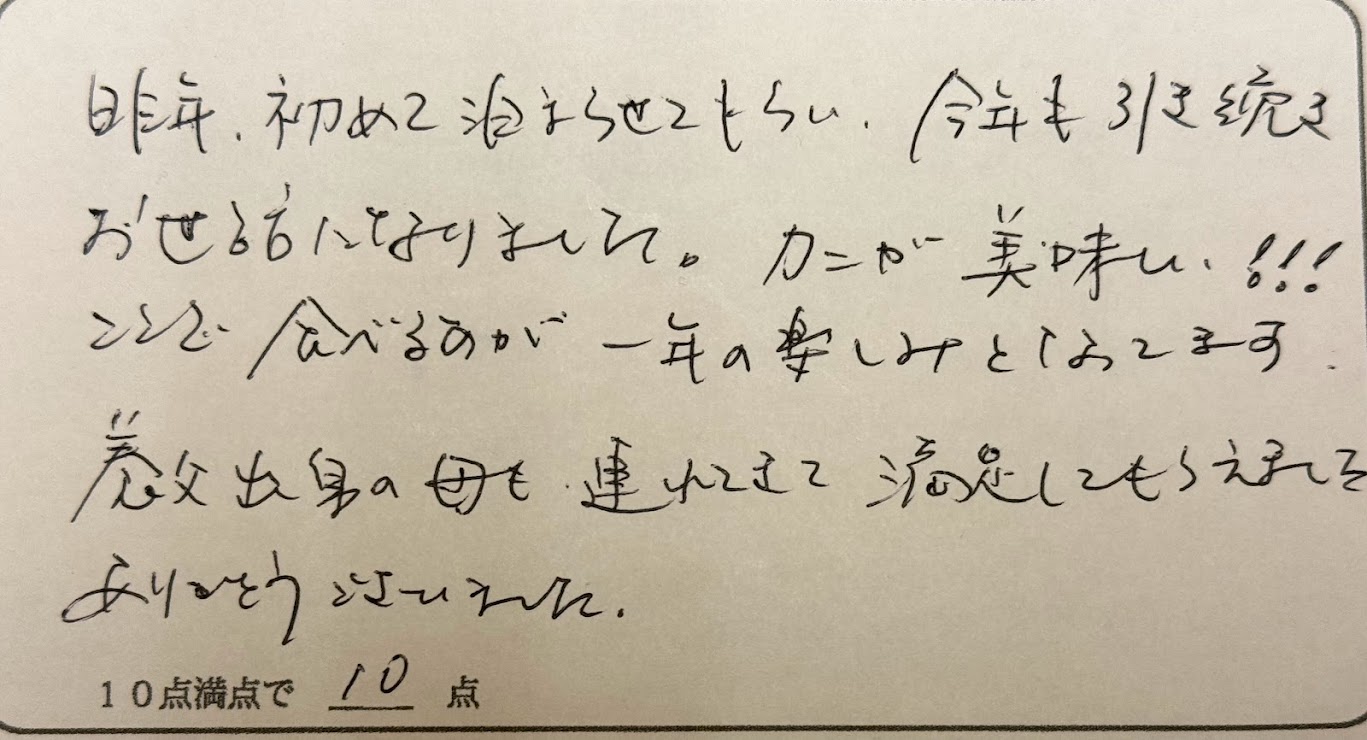 昨年、初めて泊まらせてもらい、今年も引き続き
お世話になりました。カニが美味しい、!!!
ここで食べるのが一年の楽しみとなってます.
養父出身の母も連れてきて満足してもらえました
ありがとうございました.
10点満点で 10 点